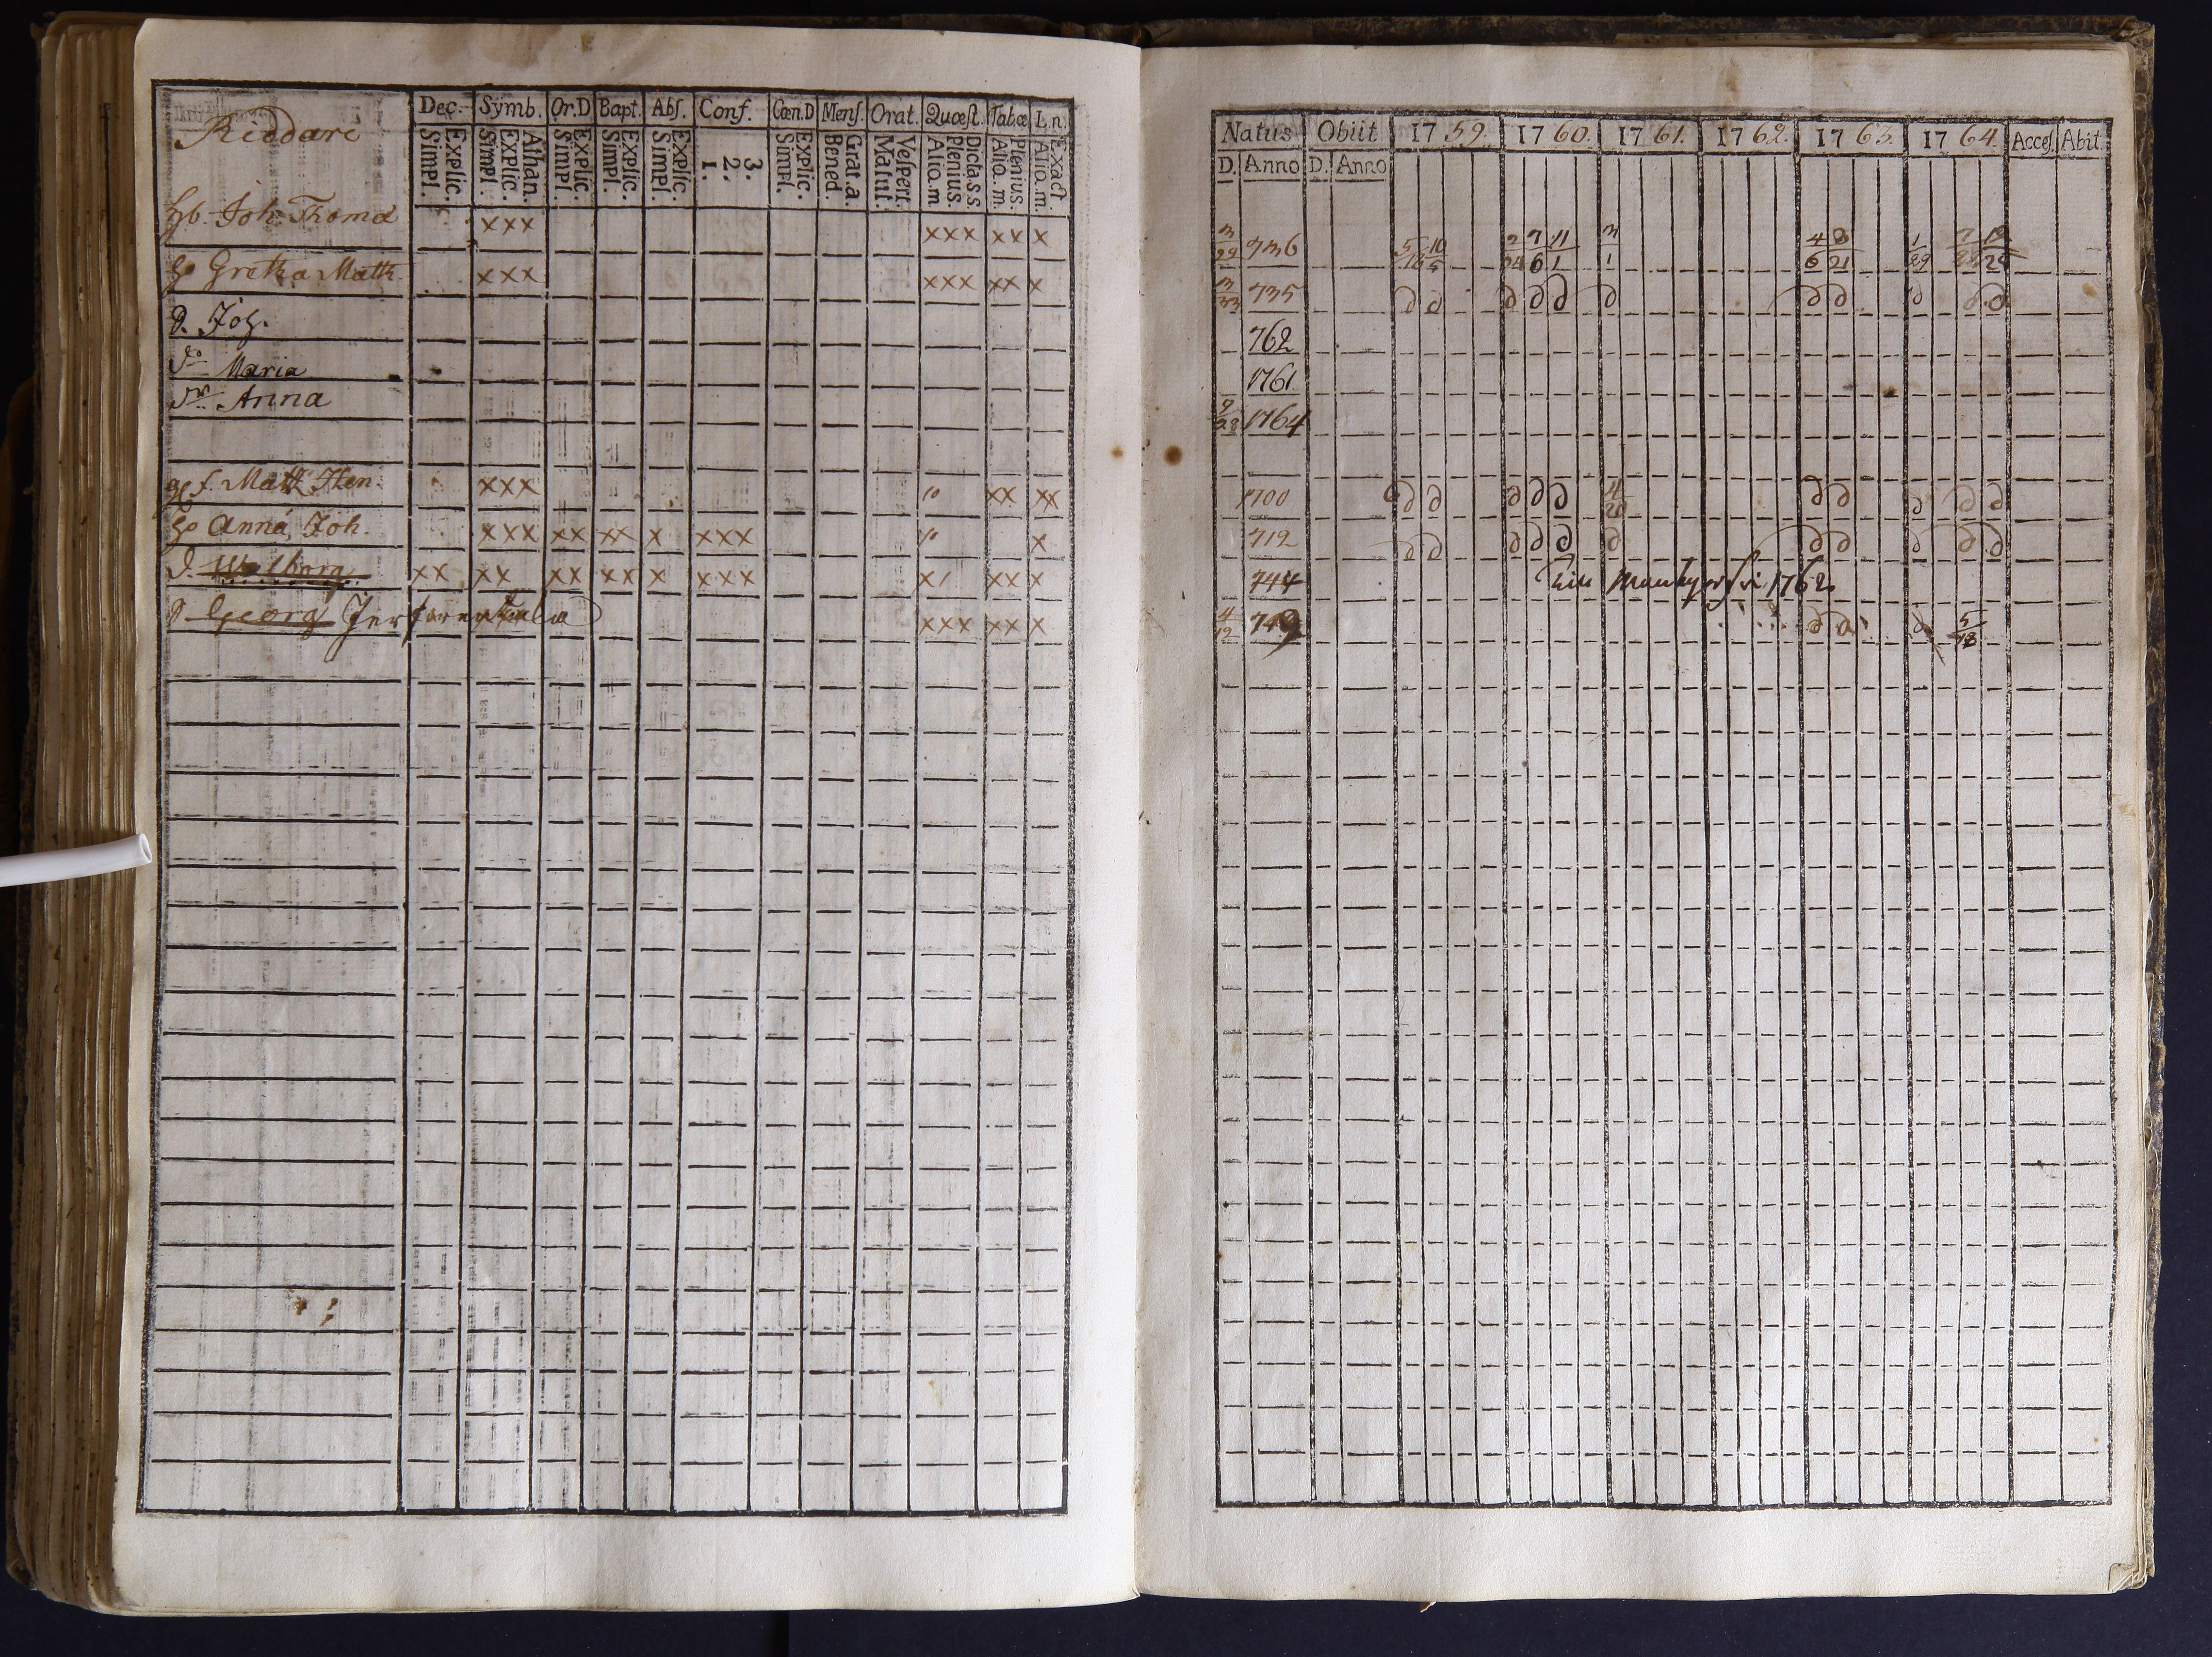 Riddare
Dec. Symb. Or.D Bapt. Abſ. Conf. Cœn.D Menſ. Orat. Quœſt. Tabœ L.n.
Explic. Simpl. Athan. Explic. Simpl. Explic. Simpl. Explic. Simpl. Explic. Simpl. 3. 2. 1. Explic. Simpl. Grat.a. Bened. Veſpert. Matut. Dicta.s.s. Plenius. Aliq.m Plenius. Aliq.m. Exact. Aliq.m.
hb. Joh. Thomæ xxx xxx xx x
h Gretha Matth. xxx xxx xx x
d. Joh.
Maria
Anna
Matth Hen. xxx xx xx
h Anna Joh. xxx xx xx x xxx x
d. Walborg xx xx xx xx x xxx x/ xx x
d Georg xxx xx x
Natus Obiit 17 59. 17 60. 17 61. 17 62. 17 63. 17 64. Acceſ. Abit.
D. Anno D. Anno
3/29 736 5/16 10/5 2/24 7/6 11/1 3/1 4/6 8/21 1/29
735 ∂ ∂ ∂ ∂ ∂ ∂ ∂ ∂ ∂ ∂ ∂
762
1761
9/28 1764
1700 ∂ ∂ ∂ ∂ ∂ ∂ ∂ ∂ ∂ ∂
712 ∂ ∂ ∂ ∂ ∂ ∂ ∂ ∂ ∂ ∂ ∂
744 1762
4/12 749 ∂ ∂ ∂ 5/18